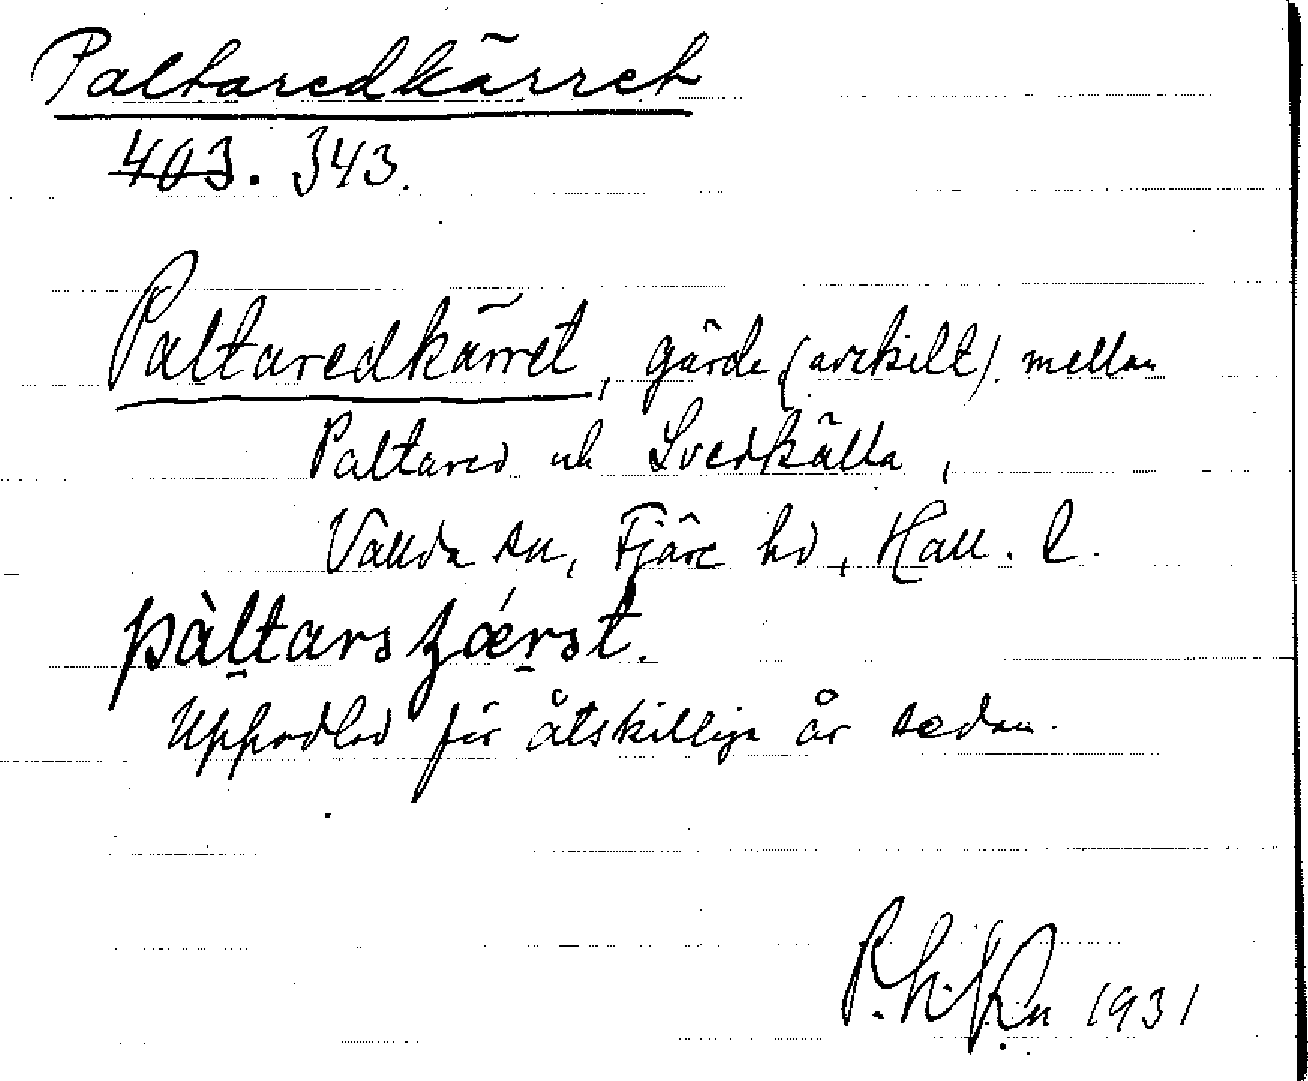 Paltaredkärret
403. 343.
Paltaredkärret, gärde (avskilt) mellan
Paltared och Svedkälla,
Vallda sn, Fjäre hd, Hall. l.
pàltarsʒǽrət.
Upphodlad för åtskilliga år sedan.
1931